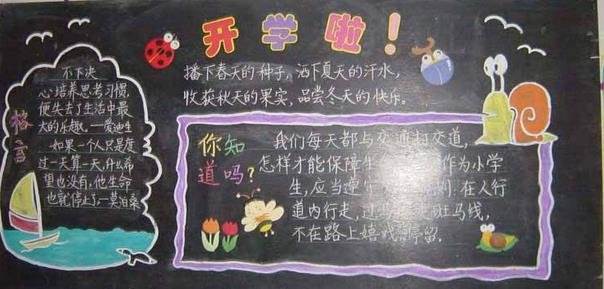 开学啦！
播下春天的种子，洒下夏天的汗水，
收获秋天的果实，品尝冬天的快乐。
格言
不下决
心培养思考习惯，
便失去了生活中最
大的乐趣。—爱迪生
如果一个人只是度
过一天算一天，什么希
望也没有，他生命
也就停止了—莫泊桑
你知
道吗？
我们每天都与交通打交道，
怎样才能保障生 作为小学
生，应当 则：在人行
道内行走，过马 斑马线，
不在路上嬉戏 停留。